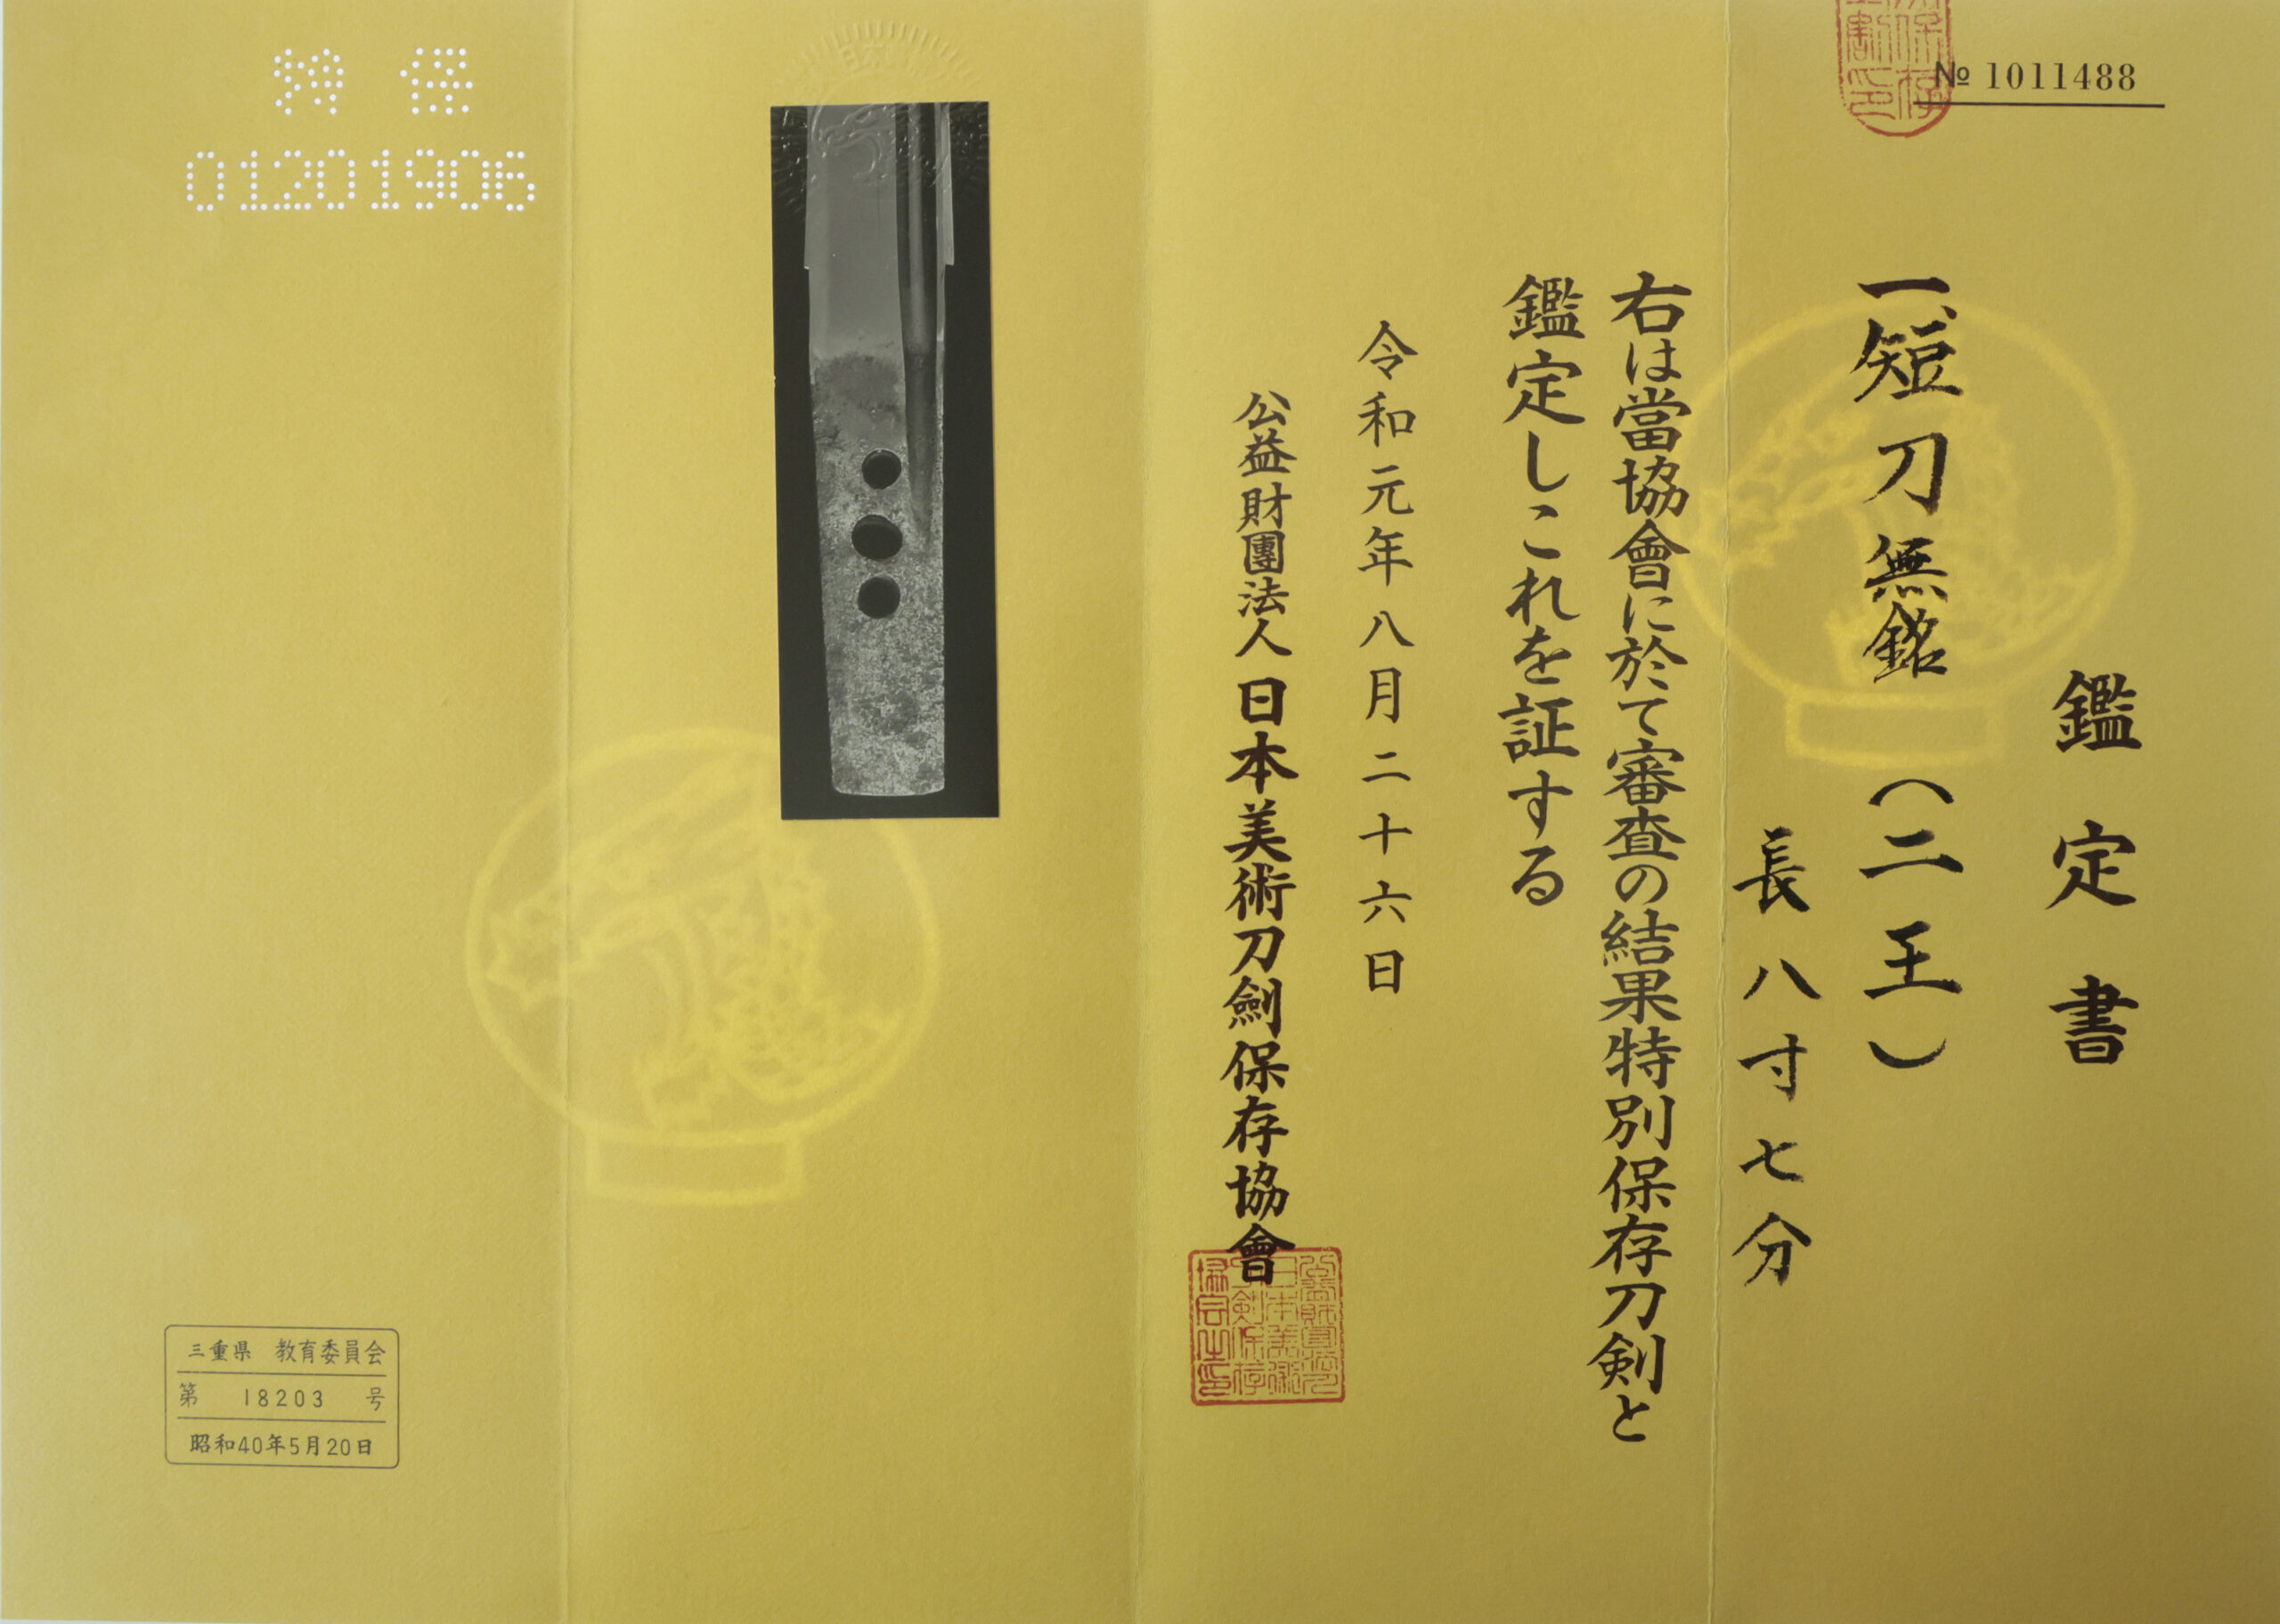 № 1011488
鑑定書
一、短刀 無銘(二王)
長八寸七分
右は當協會に於て審査の結果特別保存刀剣と
鑑定しこれを証する
令和元年八月二十六日
公益財團法人 日本美術刀劍保存協會
特保
01201906
三重県 教育委員会
第 18203 号
昭和40年5月20日